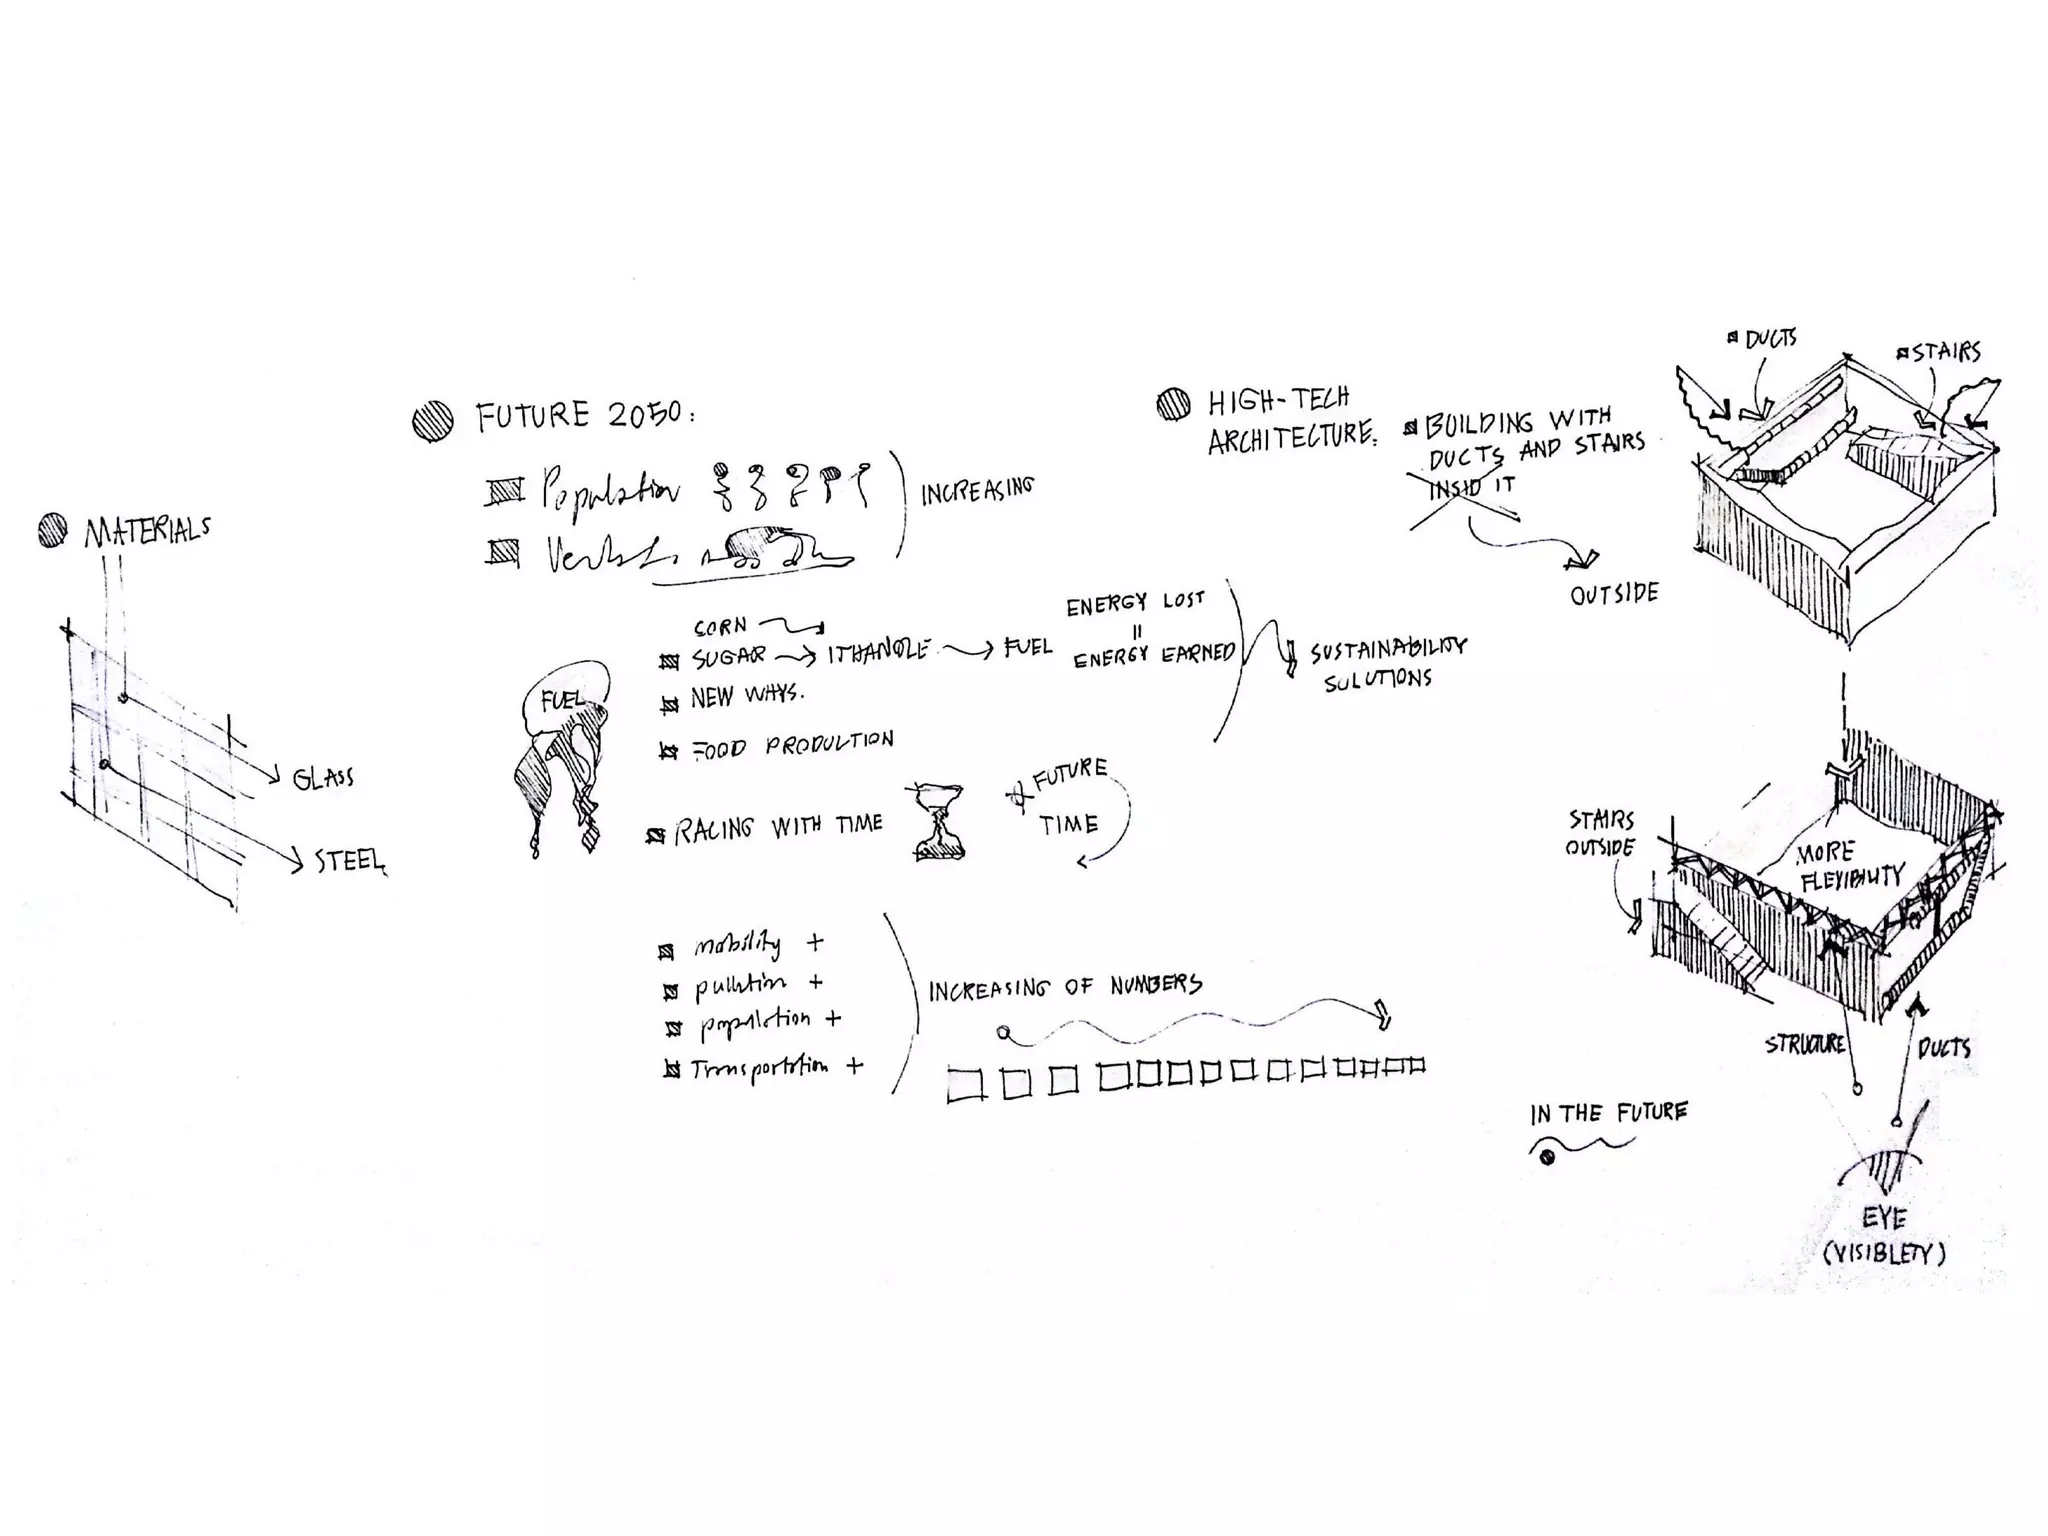 MATERIALS
GLASS
STEEL
FUTURE 2050:
Population
INCREASING
FUEL
CORN
SUGAR
ITHANOLE
FUEL
ENERGY LOST
=
ENERGY EARNED
SUSTAINABILITY
SOLUTIONS
NEW WAYS.
FOOD PRODUCTION
RACING WITH TIME
FUTURE
TIME
mobility +
pollution +
population +
Transportation +
INCREASING OF NUMBERS
HIGH-TECH
ARCHITECTURE:
BUILDING WITH
DUCTS AND STAIRS
INSID IT
OUTSIDE
DUCTS
STAIRS
STAIRS
OUTSIDE
MORE
FLEXIBILITY
STRUCTURE
DUCTS
IN THE FUTURE
EYE
(VISIBLETY)